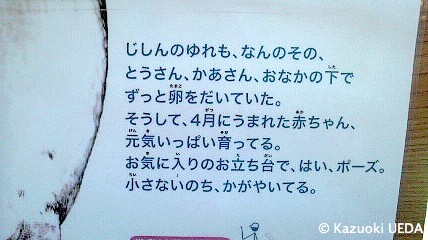 じしんのゆれも、なんのその、
とうさん、かあさん、おなかの下で
ずっと卵をだいていた。
そうして、4月にうまれた赤ちゃん、
元気いっぱい育ってる。
お気に入りのお立ち台で、はい、ポーズ。
小さないのち、かがやいてる。
© Kazuoki UEDA